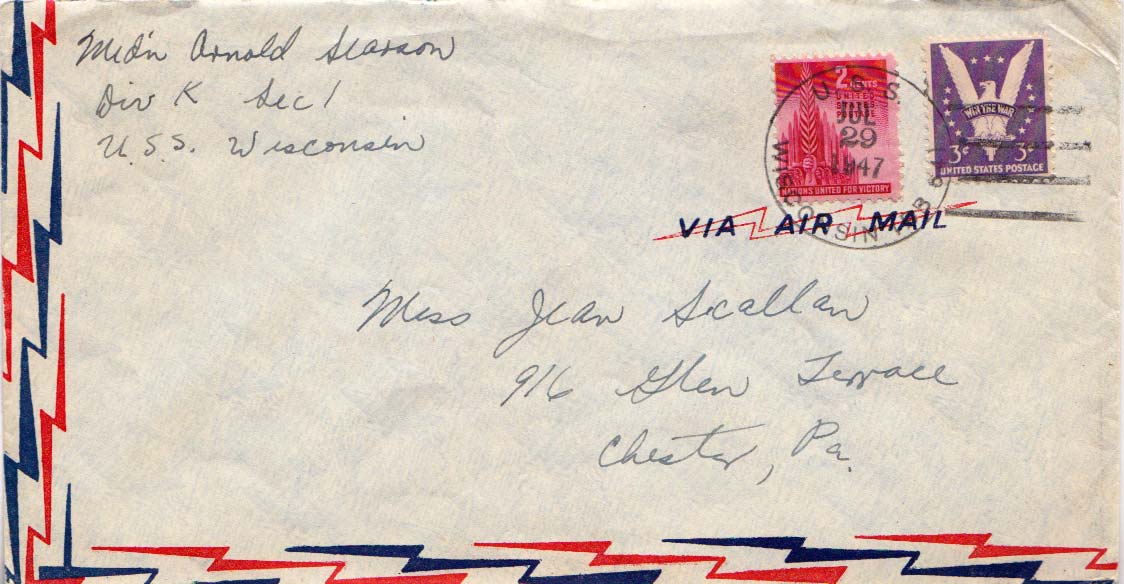 Mid'n Arnold Searson
Div K Sec 1
U.S.S. Wisconsin
2 CENTS
UNITED
STATES
POSTAGE
NATIONS UNITED FOR VICTORY
WIN THE WAR
3¢ 3¢
UNITED STATES POSTAGE
U.S.S.
WISCONSIN
JUL
29
1947
VIA AIR MAIL
Miss Jean Scallan
916 Glen Terrace
Chester, Pa.